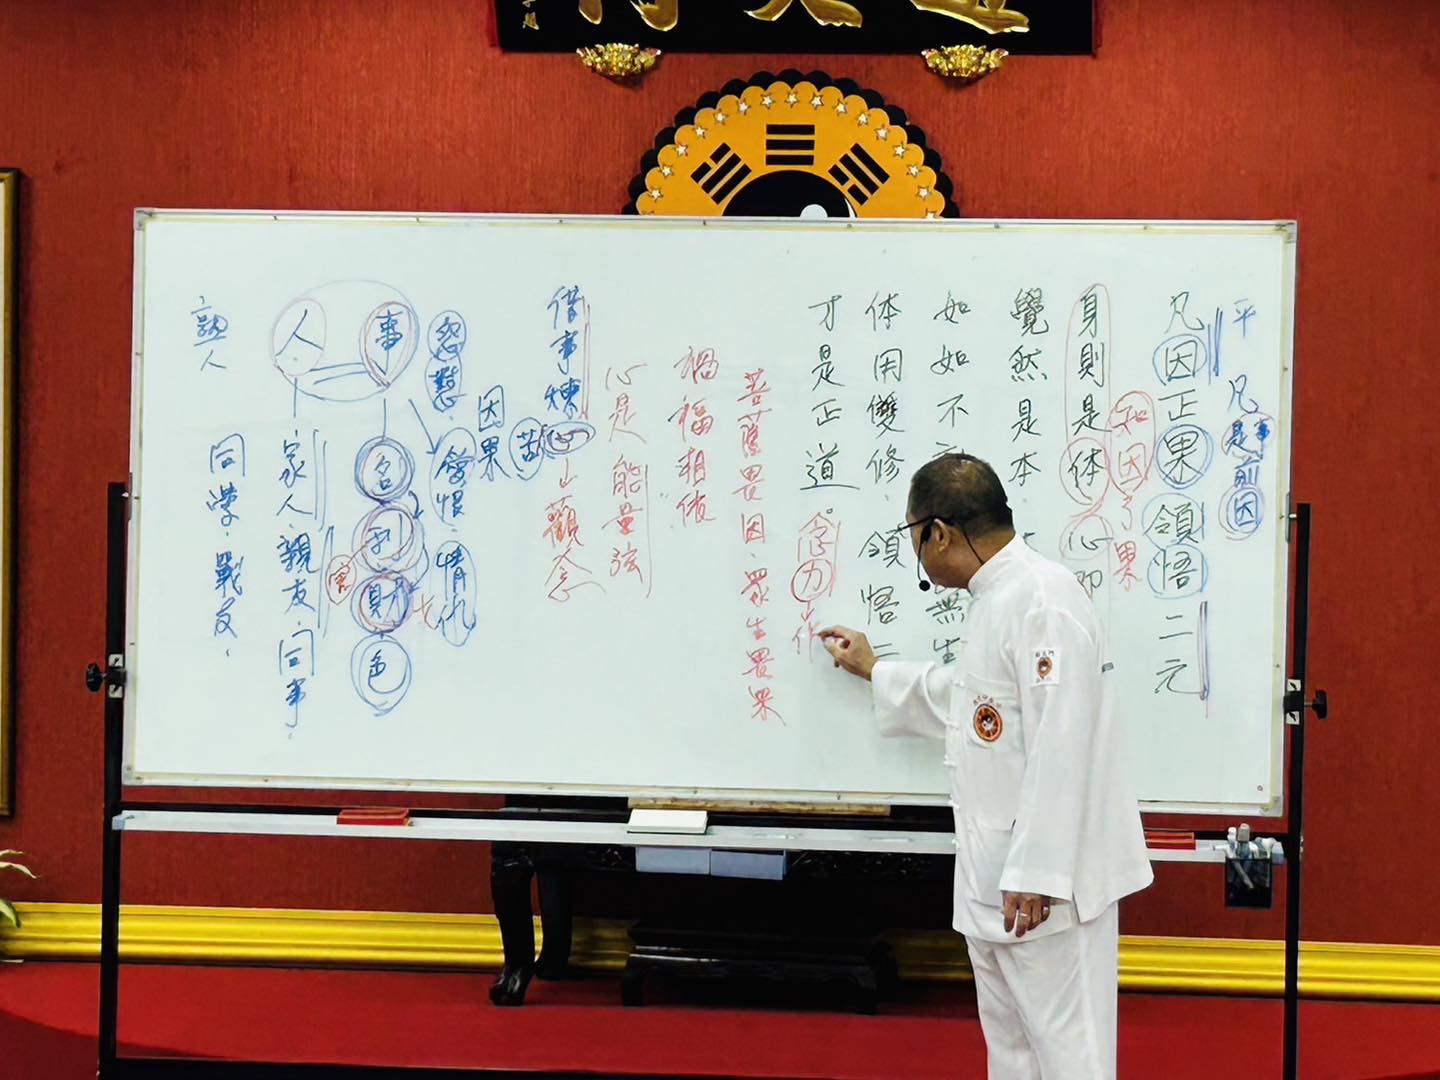 平凡
凡事是前因
凡因正果領悟二元
知因了果
身則是体心即
覺然是本
如如不
無生
体用雙修領悟二
才是正道。
念力作
菩薩畏因、眾生畏果
禍福相依
心是能量弦
借事煉心觀念
因果
苦
怨懟、
怨恨、情仇
事
名
利
財
色
害
人
家人、親友、同事、
同學、戰友、
熟人